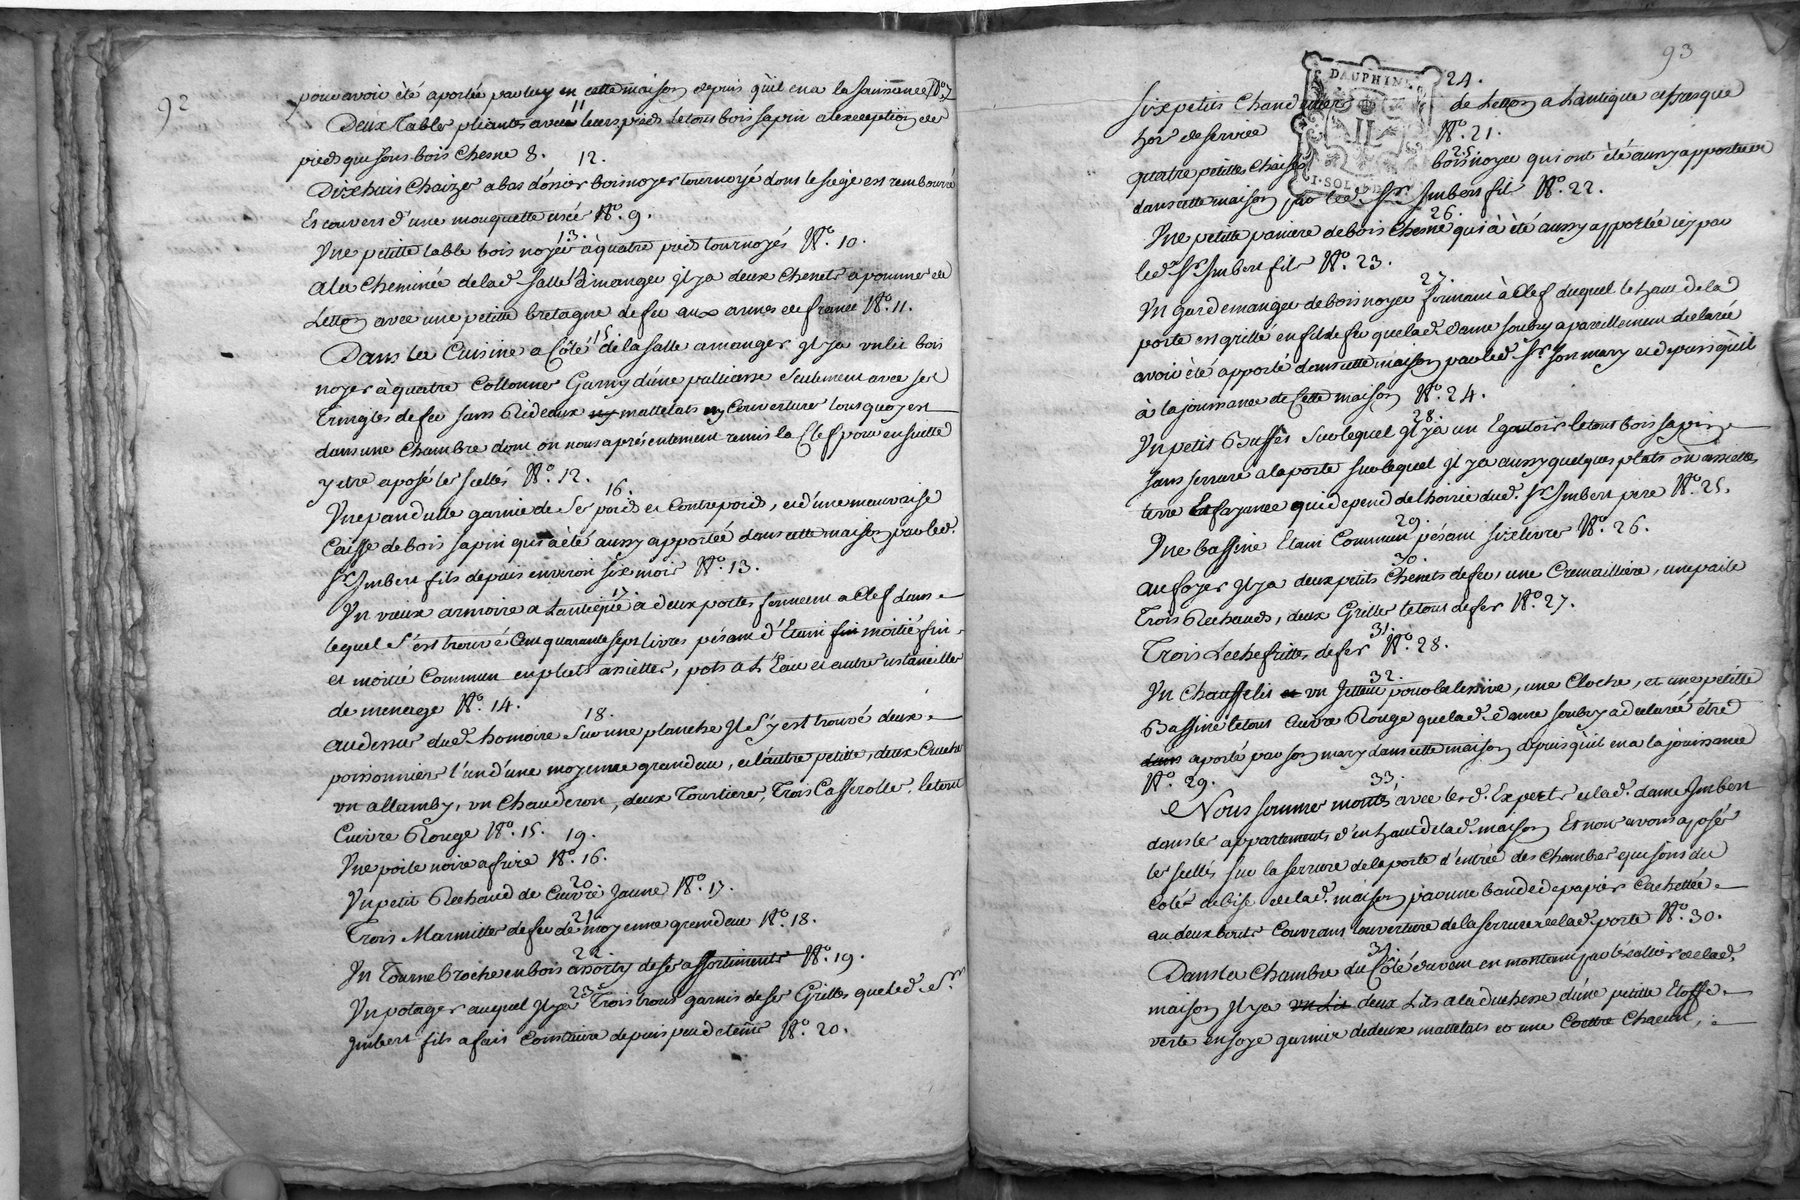 92
pour avoir été aportée par luy en cette maison depuis qu'il en a la Jouissance N.º 7
11
Deux Tables pliantes avec leurs pieds le tout bois sapin a lexception des
pieds qui sont bois Chesne 8.
12.
Dix huit Chaizes a bas d'osier bois noyer tournoyé dont le siege est rembourré
Et couvert d'une mouquette usée N.º 9.
13.
Une petitte table bois noyer à quatre pieds tournoyés N.º 10.
a la Cheminée de lad. Salle a manger Il y a deux Chenets a pommes de
Letton avec une petitte bretagne de feu aux armes de france N.º 11.
15
Dans la Cuisine a Côté de la Salle a manger Il y a un lit bois
noyer à quatre Collonnes Garny d'une palliasse Seulement avec ses
Tringles de feu sans Rideaux ny mattelats ny Couverture lous quoy est
dans une Chambre dont on nous a présentement remis la Clef pour ensuitte
y etre aposé les scellés N.º 12.
16.
Une pandulle garnie de Ses poids et Contrepoids, et d'une mauvaise
Caisse de bois sapin qui a été aussy apportée dans cette maison par led.
Sr. Imbert fils depuis environ Six mois N.º 13.
17.
Un vieux armoire a Lantique a deux portes fermant a Clef dans
lequel S'est trouvé Cent quarante sept livres pésant d'Etain fin moitié fin
et moitié Commun en plats assiettes, pots a L'Eau et autres ustancilles
de menage N.º 14.
18.
au dessus dud. homoire Sur une planche Il S'y est trouvé deux
poissonnieres l'un d'une moyenne grandeur, et l'autre petitte, deux Cruches
un allamby, un Chauderon, deux Tourtieres, Trois Casserolles, le tout
Cuivre Rouge N.º 15.
19.
Une poile noire a frire N.º 16.
20
Un petit Rechaud de Cuivre Jaune N.º 17.
21
Trois Marmittes de feu de moyenne grandeur N.º 18.
22.
Un Tournebroche en bois assorty de ses assortiments N.º 19.
23.
Un potager auquel Il y a Trois trous garnis de ses Grilles que led. Sr.
Imbert fils a fait Construire depuis peu de tems N.º 20.
93
DAUPHINE
II
I·SOL·DE
24.
Six petits Chandeliers de Letton a Lantique a presque
hors de service N.º 21.
25.
quatre petittes Chaises bois noyer qui ont été aussy apportée en
dans cette maison par led. Sr. Imbert fils N.º 22.
26.
Une petitte paniere de bois Chesne qui à été aussy apportée icy par
led. Sr. Imbert fils N.º 23.
27.
Un Gardemanger de bois noyer fermant à Clef duquel le haut de la
porte est grillé en fil de fer que lad. dame Soubry a pareillement declarée
avoir été apporté dans cette maison par led. Sr. Son mary et depuis qu'il
à la jouissance de Cette maison N.º 24.
28.
Un petit Buffet Sur lequel Il y a un Egoutoir le tout bois sapin
sans serrure a la porte sur lequel Il y a aussy quelques plats ou assiettes
terre Et fayance qui depend de lhoirie dud. Sr. Imbert pere N.º 25.
29.
Une bassine Etain Commun pésant six livres N.º 26.
30.
au foyer Il y a deux petits Chenets de feu, une Cremailliere, une paile
Trois Rechauds, deux Grilles le tout de fer N.º 27.
31.
Trois Lechefrittes de fer N.º 28.
32.
Un Chauffelit et un Jetteur pour la lessive, une Cloche, et une petitte
Bassine le tout Cuivre Rouge que lad. dame Soubry a declarée être
dans aporté par son mary dans cette maison depuis qu'il en a la jouissance
N.º 29.
33.
Nous sommes montés avec lesd. Experts et lad. dame Imbert
dans les appartements d'en haut de lad. maison Et nous avons aposés
les scellés sur la serrure de la porte d'entrée des Chambres qui sont du
Coté de bise de lad. maison par une bande de papier Cachettée
au deux bouts Couvrant louverture de la serrure de lad. porte N.º 30.
34.
Dans la Chambre du Côté du vent en montant par les calier de lad.
maison Il y a un Lit deux Lits a la duchesse d'une petitte Etoffe
verte en soye garnie de deux mattelats et une Coettre Chacun,